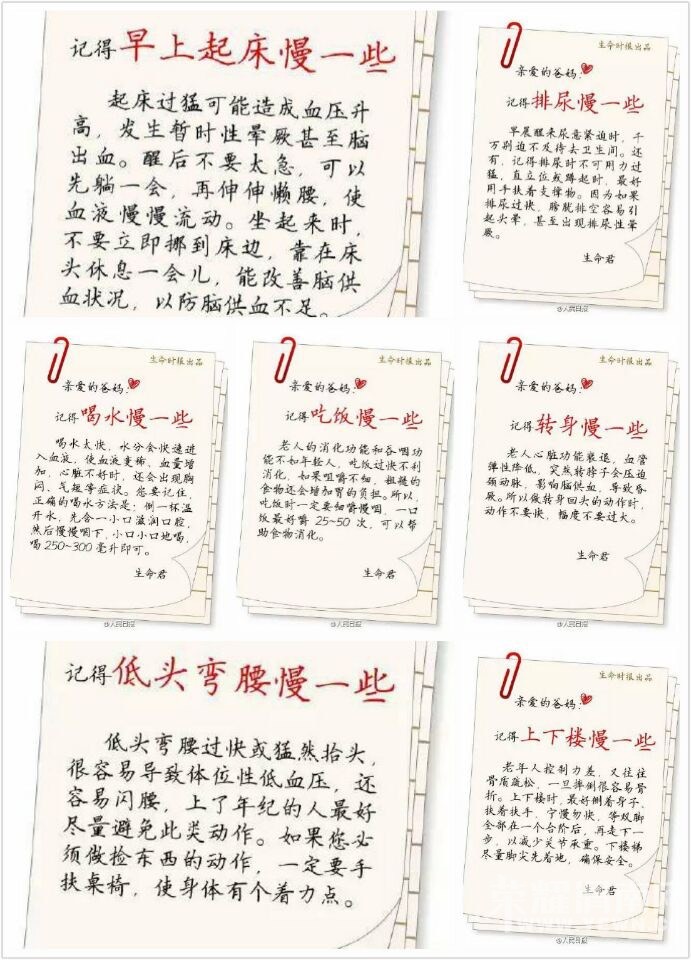 记得早上起床慢一些
起床过猛可能造成血压升
高，发生暂时性晕厥甚至脑
出血。醒后不要太急，可以
先躺一会，再伸伸懒腰，使
血液慢慢流动。坐起来时，
不要立即挪到床边，靠在床
头休息一会儿，能改善脑供
血状况，以防脑供血不足。
生命时报出品
亲爱的爸妈：
记得排尿慢一些
早晨醒来尿意紧迫时，千
万别迫不及待去卫生间。还
有，记得排尿时不可用力过
猛，直立位或蹲起时，最好
用手扶着支撑物。因为如果
排尿过快，膀胱排空容易引
起头晕，甚至出现排尿性晕
厥。
生命君
@人民日报
生命时报出品
亲爱的爸妈：
记得喝水慢一些
喝水太快，水分会快速进
入血液，使血液变稀、血量增
加，心脏不好时，还会出现胸
闷、气短等症状。您要记住，
正确的喝水方法是：倒一杯温
开水，先含一小口滋润口腔，
然后慢慢咽下，小口小口地喝，
喝250~300毫升即可。
生命君
@人民日报
生命时报出品
亲爱的爸妈：
记得吃饭慢一些
老人的消化功能和吞咽功
能不如年轻人，吃饭过快不利
消化，如果咀嚼不细，粗糙的
食物还会增加胃的负担。所以，
吃饭时一定要细嚼慢咽，一口
饭最好嚼25~50次，可以帮
助食物消化。
生命君
@人民日报
生命时报出品
亲爱的爸妈：
记得转身慢一些
老人心脏功能衰退，血管
弹性降低，突然转脖子会压迫
颈动脉，影响脑供血，导致昏
厥。所以做转身回头的动作时，
动作不要快，幅度不要过大。
生命君
@人民日报
记得低头弯腰慢一些
低头弯腰过快或猛然抬头，
很容易导致体位性低血压，还
容易闪腰，上了年纪的人最好
尽量避免此类动作。如果您必
须做捡东西的动作，一定要手
扶桌椅，使身体有个着力点。
生命时报出品
亲爱的爸妈：
记得上下楼慢一些
老年人控制力差，又往往
骨质疏松，一旦摔倒很容易骨
折。上下楼时，最好侧着身子，
扶着扶手，宁慢勿快，等双脚
全部在一个台阶后，再走下一
步，以减少关节承重。下楼梯
尽量脚尖先着地，确保安全。
生命君
@人民日报